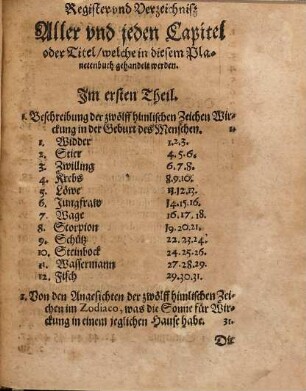 Register vnd Verzeichniß
Aller vnd jeden Capitel
oder Titel/welche in diesem Pla-
netenbuch gehandelt werden.
Im ersten Theil.
1. Beschreibung der zwölff himlischen Zeichen Wir-
ckung in der Geburt des Menschen. 1.
1. Widder 1.2.3.
2. Stier 4.5.6.
3. Zwilling 6.7.8.
4. Krebs 8.9.10.
5. Löwe 11.12.13.
6. Jungfraw 14.15.16.
7. Wage 16.17.18.
8. Storpion 19.20.21.
9. Schütz 22.23.24.
10. Steinbock 24.25.26.
11. Wassermann 27.28.29.
12. Fisch 29.30.31.
2. Von den Angesichten der zwölff himlischen Zei-
chen im Zodiaco, was die Sonne für Wir-
ckung in einem jeglichen Hause habe. 31.
Die